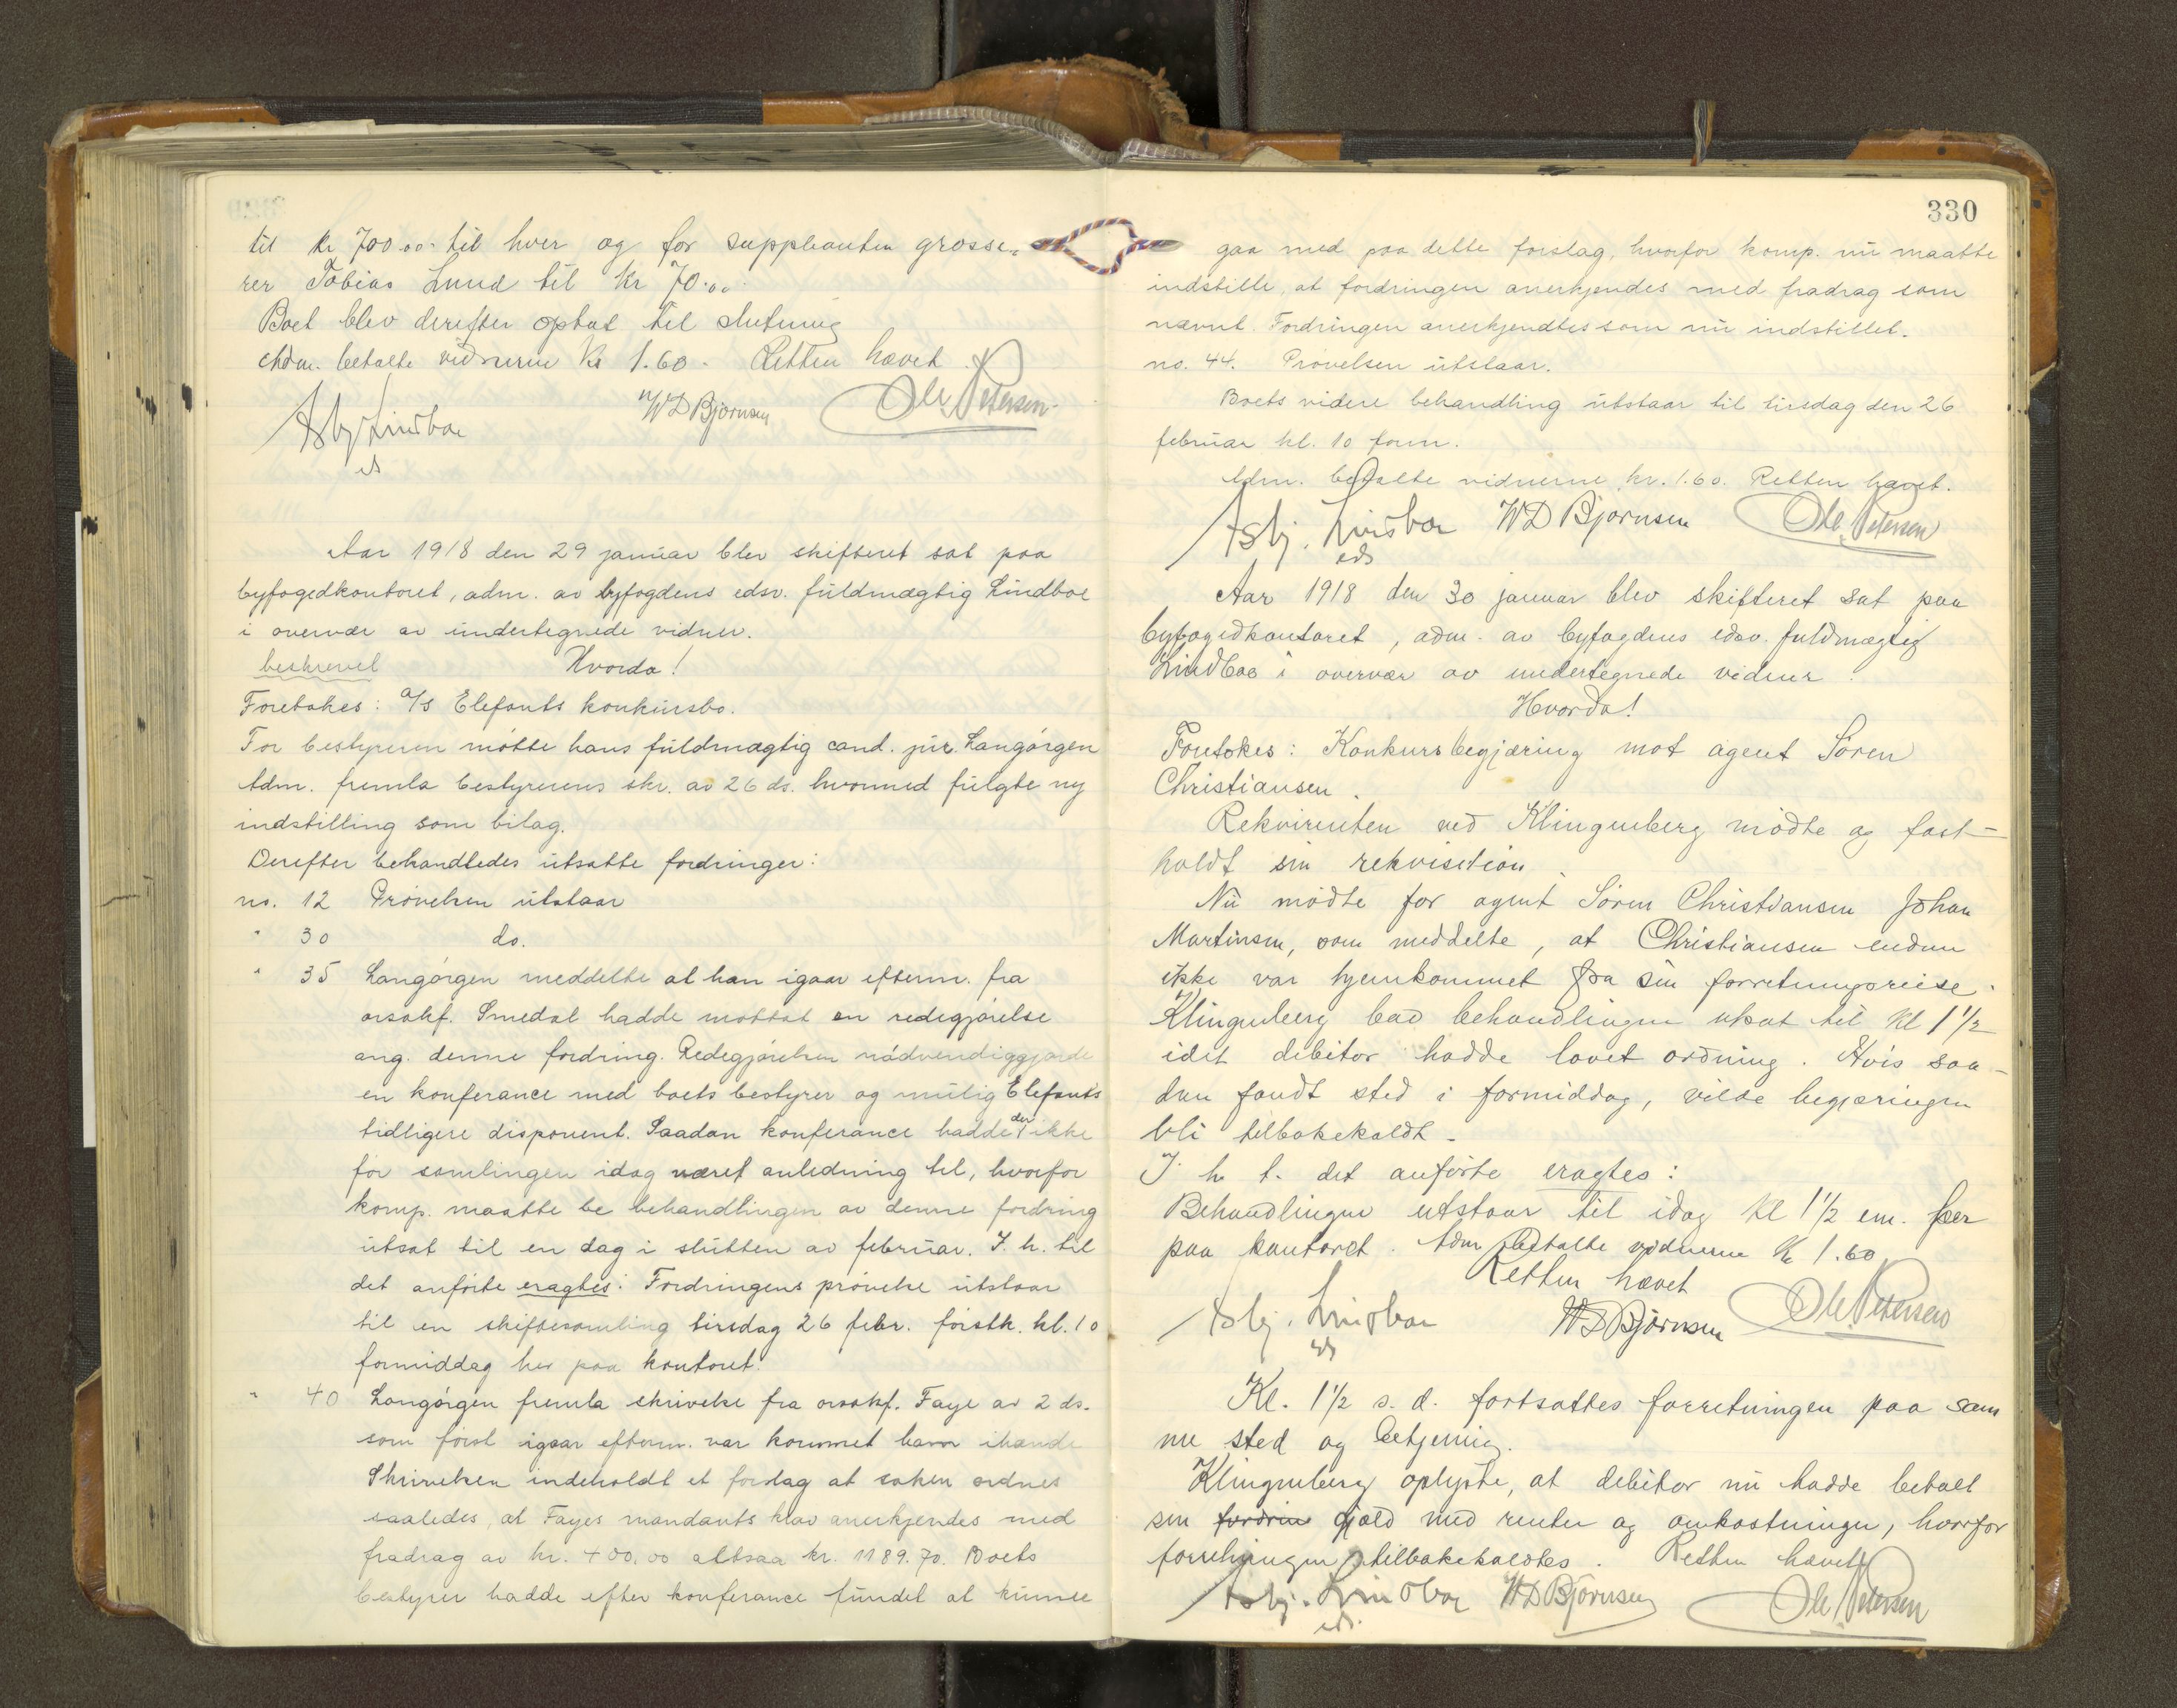 til kr 700.00 til hver og for suppleanten grosse-
rer Tobias Lund til kr 70.00
Boet blev derefter optat til slutning
Adm. betalte vidnerne kr 1.60. Retten hævet.
Asbj Lindboe
eds
WD Bjørnsen
Ole Petersen
Aar 1918 den 29 januar blev skifteret sat paa
byfogedkontoret, adm. av byfogdens edsv. fuldmægtig Lindboe
i overvær av undertegnede vidner.
beskrevet Hvorda!
Foretokes: A/S Elefants konkursbo.
For bestyreren møtte hans fuldmægtig cand. jur. Langørgen
Adm. fremla bestyrerens skr. av 26 ds. hvormed fulgte ny
indstilling som bilag.
Derefter behandledes utsatte fordringer:
no. 12 Prøvelsen utstaar
" 30 do.
" 35 Langørgen meddelte at han igaar efterm. fra
orsakf. Smedal hadde mottat en redegjørelse
ang. denne fordring. Redegjørelsen nødvendiggjorde
en konferance med boets bestyrer og mulig Elefants
tidligere disponent. Saadan konferance hadde der ikke
før samlingen idag været anledning til, hvorfor
komp. maatte be behandlingen av denne fordring
utsat til en dag i slutten av februar. I. h. til
det anførte eragtes: Fordringens prøvelse utstaar
til en skiftesamling tirsdag 26 febr. førstk. kl. 10
formiddag her paa kontoret.
" 40 Langørgen fremla skrivelse fra orsakf. Faye av 2 ds.
som først igaar efterm. var kommet ham ihænde
Skrivelsen indeholdt et forslag at saken ordnes
saaledes, at Fayes mandants krav anerkjendes med
fradrag av kr. 400.00 altsaa kr. 1189.70. Boets
bestyrer hadde efter konferance fundet at kunne
330
gaa med paa dette forslag, hvorfor komp. nu maatte
indstille, at fordringen anerkjendes med fradrag som
nævnt. Fordringen anerkjendtes som nu indstillet.
no. 44. Prøvelsen utstaar.
Boets videre behandling utstaar til tirsdag den 26
februar kl. 10 form.
Adm. betalte vidnerne kr. 1.60. Retten hævet.
Asbj. Lindboe
eds
WD Bjørnsen
Ole Petersen
Aar 1918 den 30 januar blev skifteret sat paa
byfogedkontoret, adm. av byfogdens edsv. fuldmægtig
Lindboe i overvær av undertegnede vidner.
Hvorda!
Foretokes: Konkursbegjæring mot agent Søren
Christiansen.
Rekvirenten ved Klingenberg mødte og fast-
holdt sin rekvisition.
Nu mødte for agent Søren Christiansen Johan
Martinsen, som meddelte, at Christiansen endnu
ikke var hjemkommet fra sin forretningsreise.
Klingenberg bad behandlingen utsat til kl 1 1/2
idet debitor hadde lovet ordning. Hvis saa-
dan fandt sted i formiddag, vilde begjæringen
bli tilbakekaldt.
I h t. det anførte eragtes:
Behandlingen utstaar til idag kl 1 1/2 em. her
paa kontoret. Adm betalte vidnerne kr 1.60
Retten hævet
Asbj. Lindboe
eds
WD Bjørnsen
Ole Petersen
Kl. 1 1/2 s. d. fortsattes forretningen paa sam
me sted og betjening.
Klingenberg oplyste, at debitor nu hadde betalt
sin fordrin gjæld med renter og omkostninger, hvorfor
forretningen tilbakekaldtes. Retten hævet
Asbj. Lindboe
eds.
WD Bjørnsen
Ole Petersen